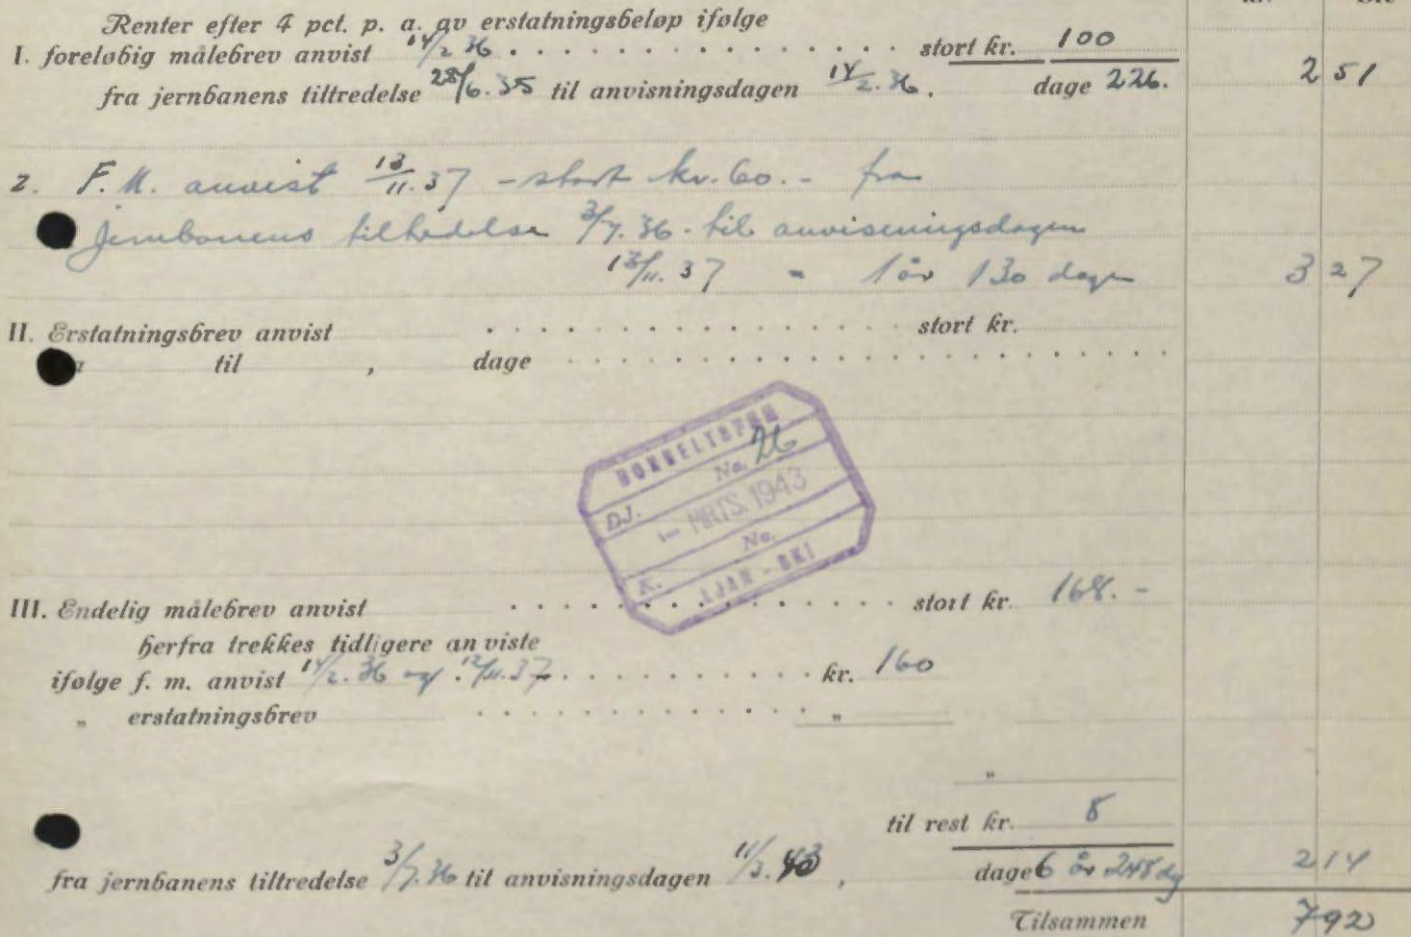 Renter efter 4 pct. p. a. av erstatningsbeløp ifølge
I. foreløbig målebrev anvist 14/2 36 . . . . . . . . . . . . . . . stort kr. 100
fra jernbanens tiltredelse 28/6. 35 til anvisningsdagen 14/2. 36. dage 226. 2 51
2. F.M. anvist 13/11. 37 - stort kr. 60.- fra
Jernbanens tiltredelse 3/7. 36 - til anvisningsdagen
13/11. 37 = 1 år 130 dage 3 27
II. Erstatningsbrev anvist . . . . . . . . . . . . . . . stort kr.
til , dage . . . . . . . . . . . . . . . . . . . . .
DOBBELTSPOR
DJ. No. 26
1- MRTS. 1943
K. No.
LJAN - SKI
III. Endelig målebrev anvist . . . . . . . . . . . . . . stort kr. 168.-
herfra trekkes tidligere anviste
ifølge f. m. anvist 14/2. 36 og 12/11. 37 . . . . . . . . . . kr. 160
„ erstatningsbrev . . . . . . . . . . . . . „
„
til rest kr. 8
fra jernbanens tiltredelse 3/7. 36 til anvisningsdagen 11/3. 43, dage 6 år 248 dg 2 14
Tilsammen 7 92